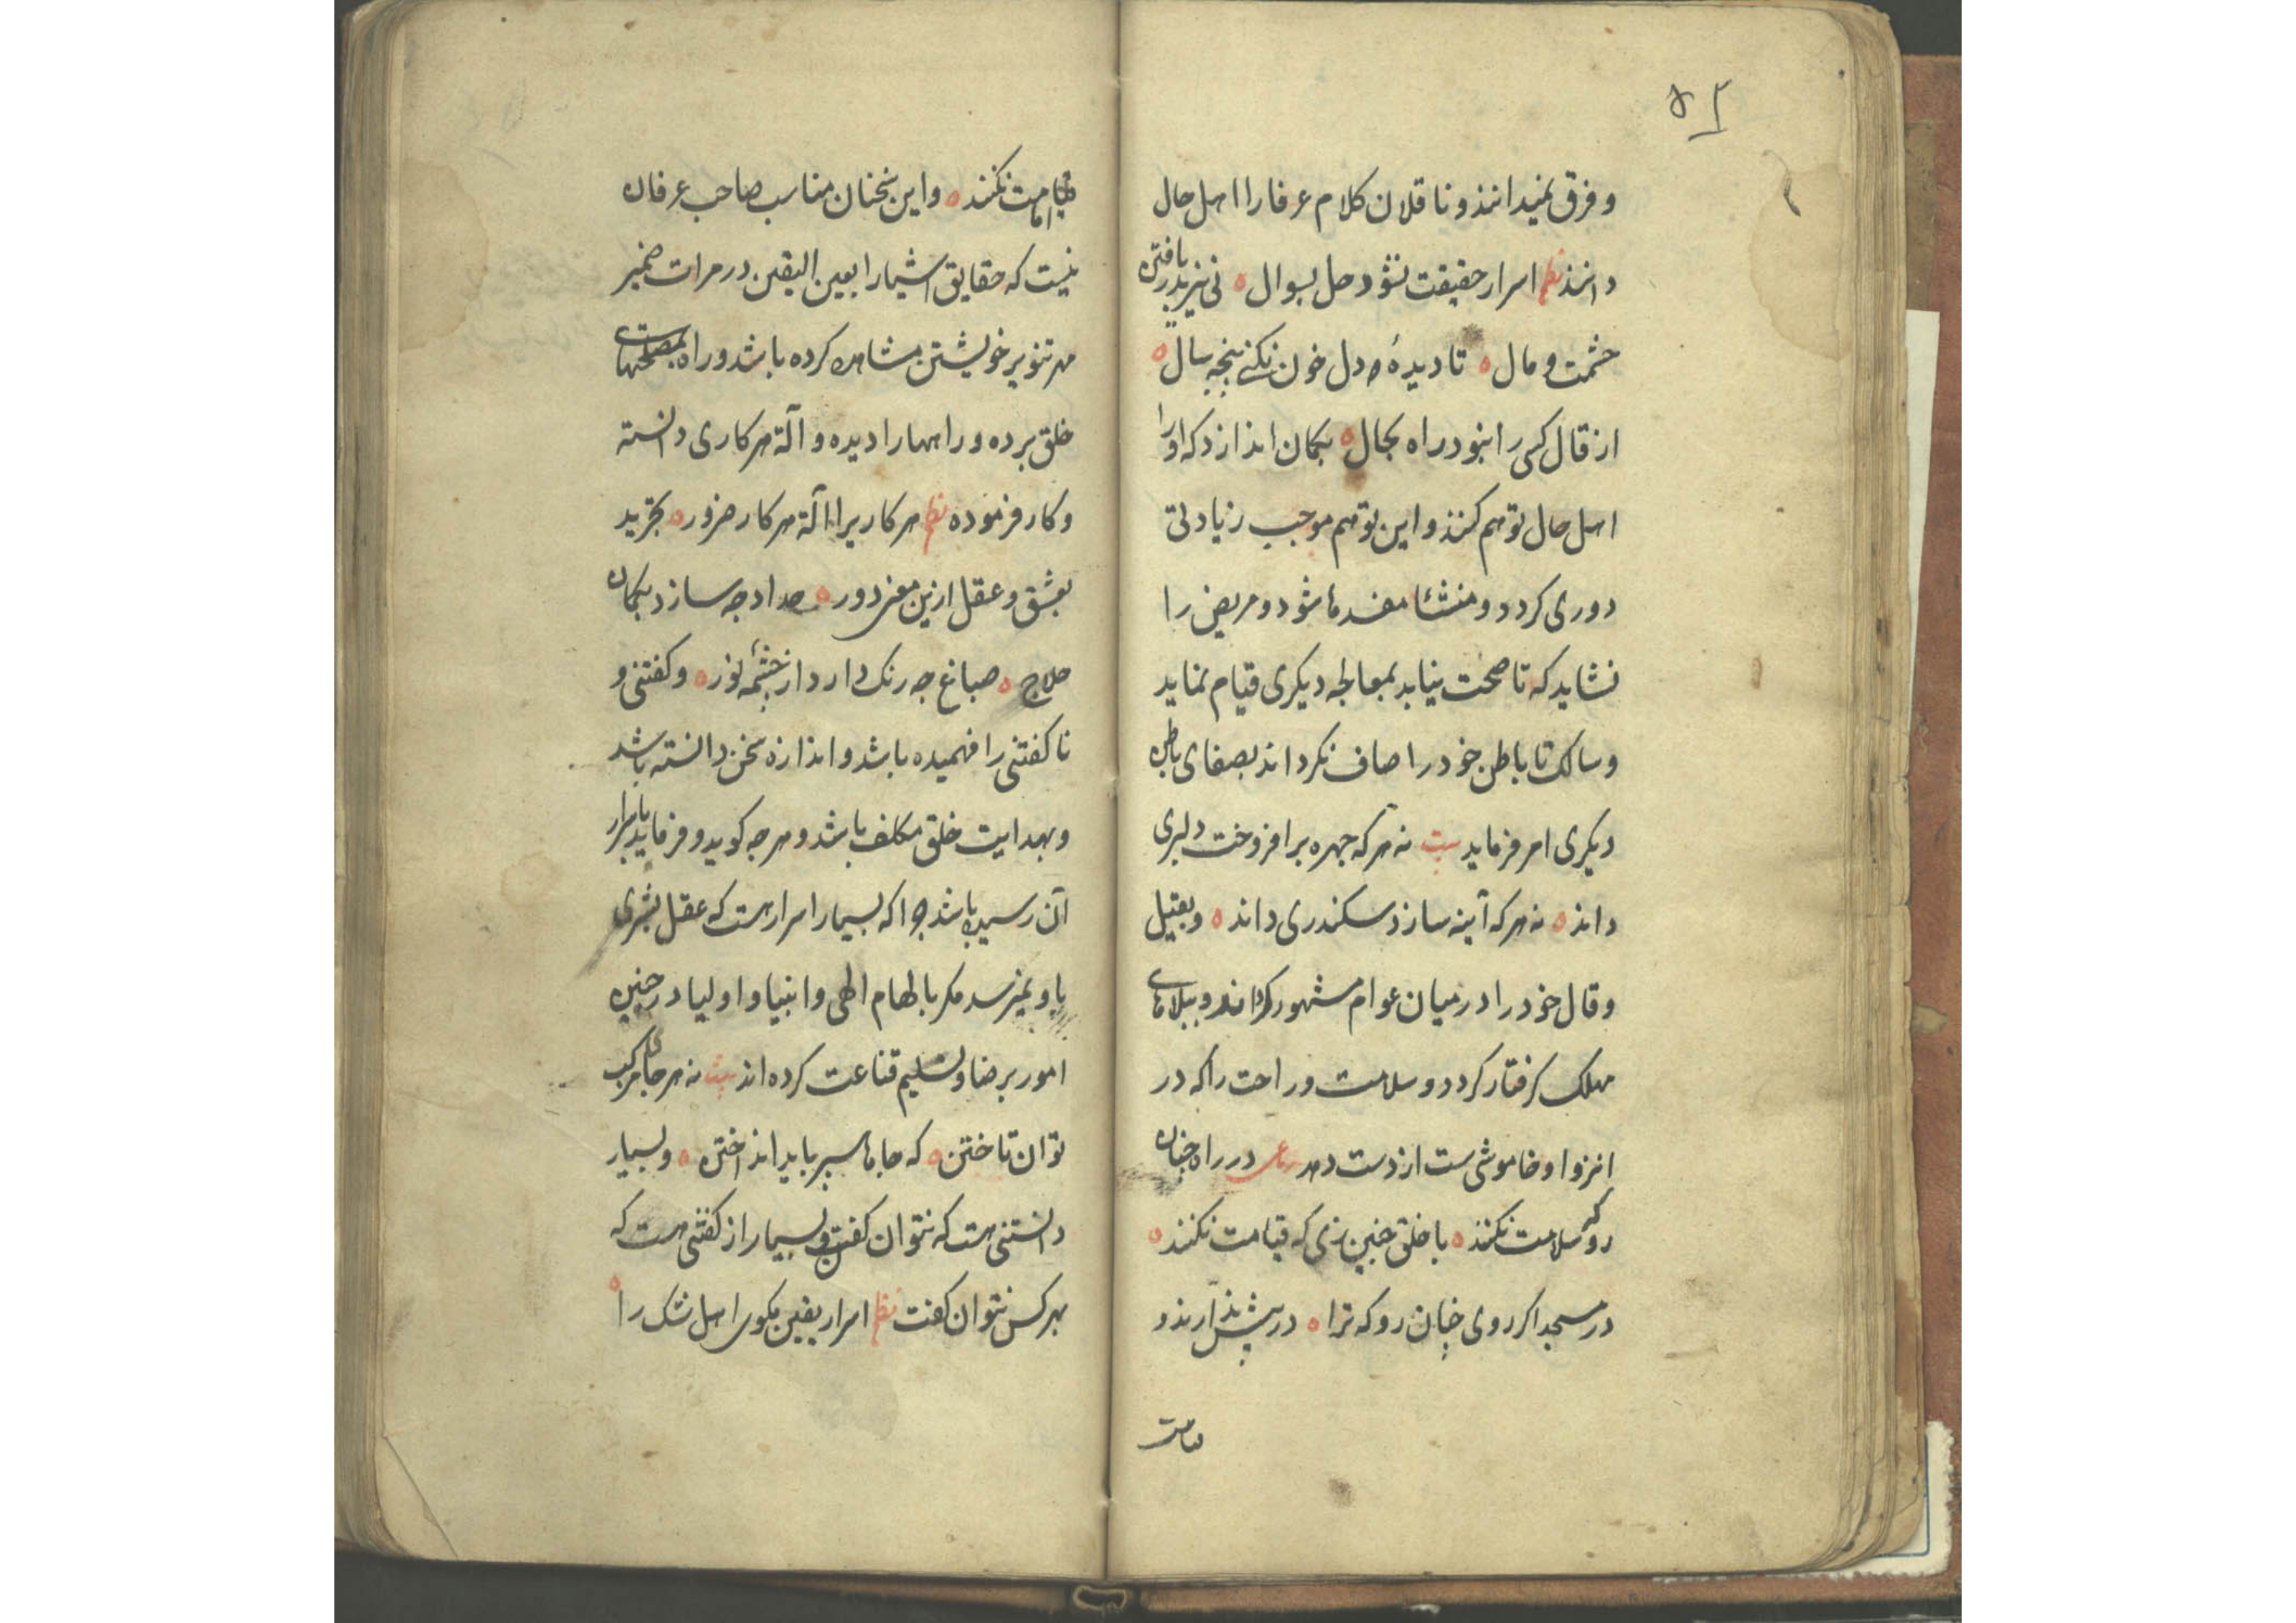 ۴۵
و فرق نمیدانند و ناقلان کلام عرفا را اهل حال
دانند نظم اسرار حقیقت نشود حل بسوال ه نی نیز بدر یافتن
حشمت و مال ه تا دیده و دل خون نکنی پنجه سال ه
از قال کسی را نبود راه بحال ه بکمان اندازد که او را
اهل حال توهم کنند و این توهم موجب زیادتی
دوری کردد و منشئا مفسدها شود و مریض را
نشاید که تا صحت نیابد بمعالجه دیکری قیام نماید
و سالک تا باطن خود را صاف نکرداند بصفای باطن
دیکری امر فرماید بیت نه هر که چهره برافروخت دلبری
داند ه نه هر که آینه سازد سکندری داند ه و بقیل
و قال خود را در میان عوام مشهور کرداند و ببلاهای
مهلک کرفتار کردد و سلامت و راحت را که در
انزوا و خاموشی ست از دست دهد رباعی در راه چنان
رو که سلامت نکنند ه با خلق چنین زی که قیامت نکنند ه
در مسجد اکر روی چنان رو که ترا ه در پیش ندارند و
امامت
امامت نکنند ه و این سخنان مناسب صاحب عرفان
نیست که حقایق اشیا را بعین الیقین در مرات ضمیر
مهر تنویر خویشتن مشاهده کرده باشد و راه بمصلحتهای
خلق برده و راهها را دیده و آلة هر کاری دانسته
و کار فرموده نظم هر کاریرا آلة هر کار ضرور ه تجرید
بعشق و عقل ازین معنی دور ه حداد چه سازد بکمان
حلاج ه صباغ چه رنک دارد از چشمهٔ نور ه و کفتنی و
ناکفتنی را فهمیده باشد و اندازه سخن دانسته باشد
و بهدایت خلق مکلف باشد و هر چه کوید و فرماید باسرار
آن رسیده باشد چرا که بسیار اسرار هست که عقل بشری
باو نمیرسد مکر بالهام الهی و انبیا و اولیا در چنین
امور برضا و تسلیم قناعت کرده اند بیت نه هر جای مرکب
توان تاختن ه که جاها سپر باید انداختن ه و بسیار
دانستنی هست که نتوان کفت و بسیار از کفتنی هست که
بهر کس نتوان کفت نظم اسرار یقین مکوی اهل شک را ه